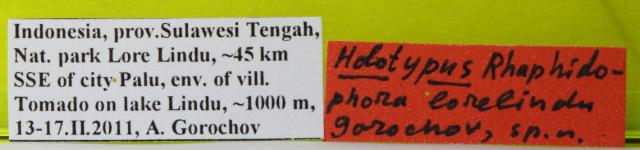 Indonesia, prov.Sulawesi Tengah,
Nat. park Lore Lindu, ~45 km
SSE of city Palu, env. of vill.
Tomado on lake Lindu, ~1000 m,
13-17.II.2011, A. Gorochov
Holotypus Rhaphido-
phora lorelindu
gorochov, sp.n.